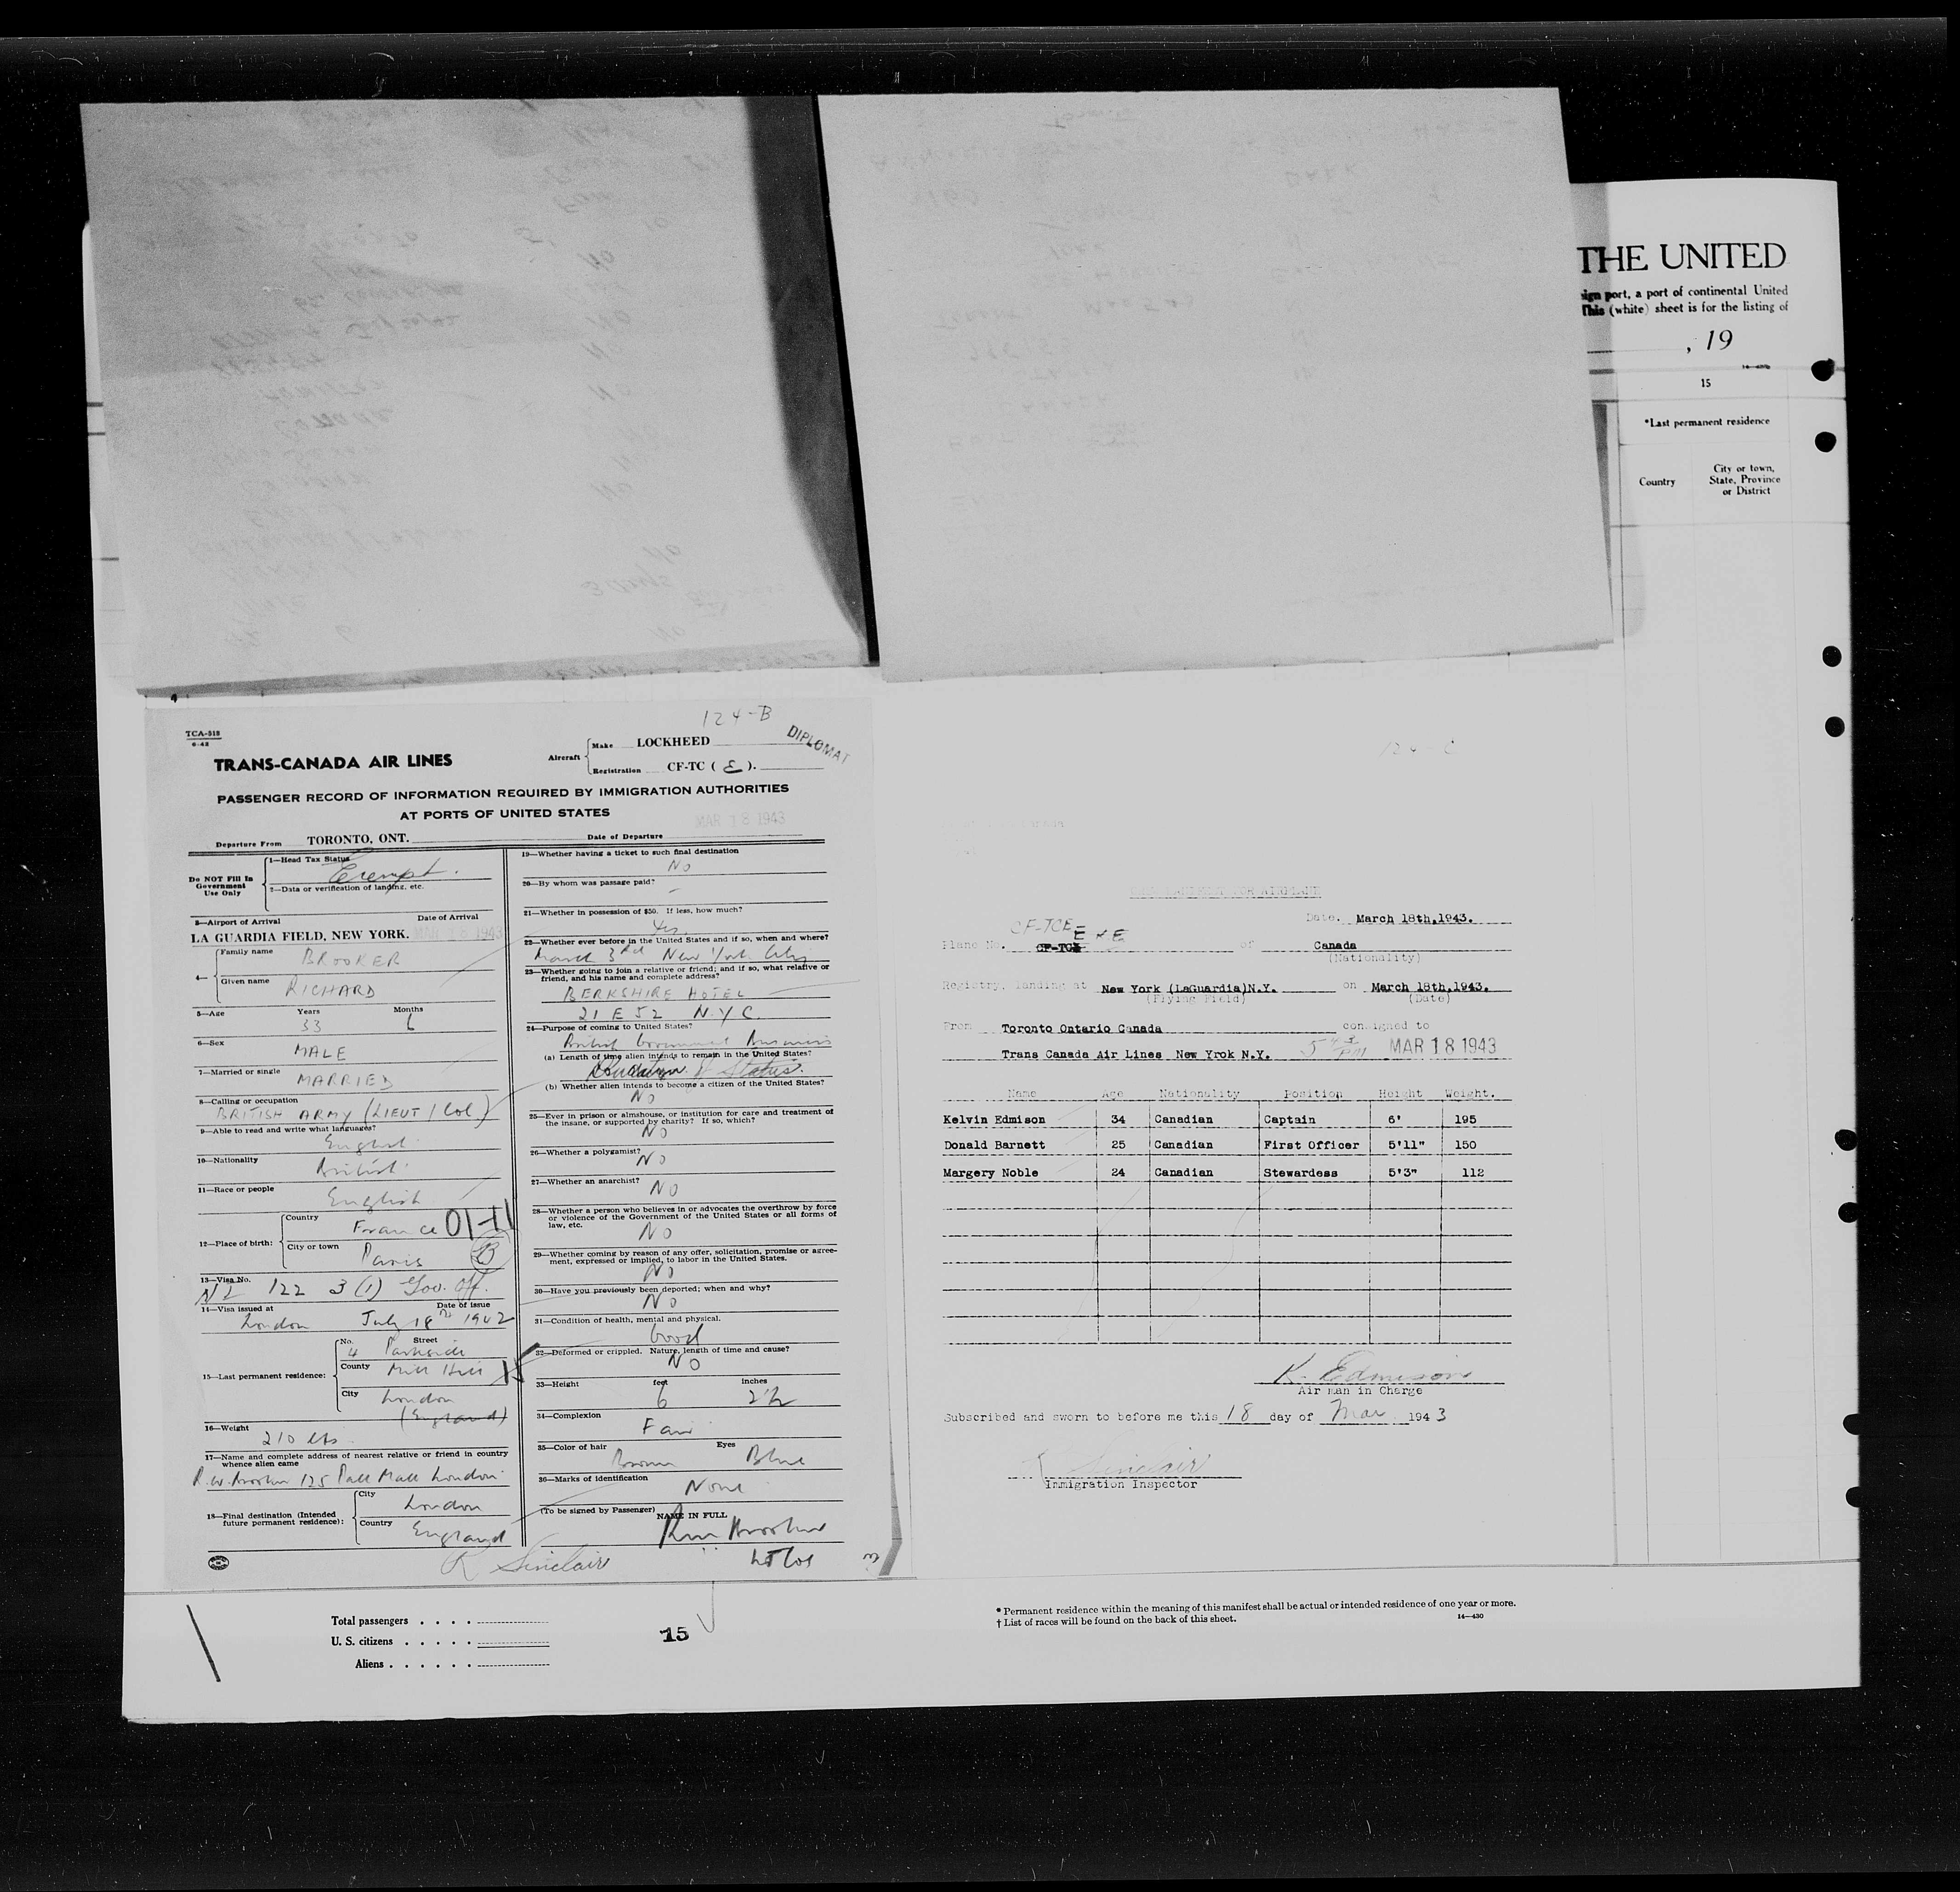 THE UNITED
ign port, a port of continental United
This (white) sheet is for the listing of
, 19
15
*Last permanent residence
Country
City or town, State, Province or District
124-B
TCA-518
6-42
TRANS-CANADA AIR LINES
Aircraft
Make LOCKHEED
Registration CF-TC ( E ).
DIPLOMAT
PASSENGER RECORD OF INFORMATION REQUIRED BY IMMIGRATION AUTHORITIES
AT PORTS OF UNITED STATES
Departure From TORONTO, ONT. Date of Departure MAR 18 1943
Do NOT Fill In Government Use Only
1—Head Tax Status
Exempt.
2—Data or verification of landing, etc.
3—Airport of Arrival Date of Arrival
LA GUARDIA FIELD, NEW YORK. MAR 18 1943
4— Family name BROOKER
Given name RICHARD
5—Age Years Months
33 6
6—Sex
MALE
7—Married or single
MARRIED
8—Calling or occupation
BRITISH ARMY (LIEUT / Col)
9—Able to read and write what languages?
English
10—Nationality
British
11—Race or people
English
12—Place of birth: Country France 01-11
City or town Paris B
13—Visa No.
122 3 (1) Gov. Off.
14—Visa issued at Date of issue
London July 18 1942
15—Last permanent residence:
No. Street
4 Parkside
County Mill Hill 15
City London
(England)
16—Weight
210 lbs
17—Name and complete address of nearest relative or friend in country whence alien came
R.W. Brooker 125 Pall Mall London
18—Final destination (Intended future permanent residence):
City London
Country England
19—Whether having a ticket to such final destination
No
20—By whom was passage paid?
–
21—Whether in possession of $50. If less, how much?
Yes.
22—Whether ever before in the United States and if so, when and where?
March 3rd New York City
23—Whether going to join a relative or friend; and if so, what relative or friend, and his name and complete address?
BERKSHIRE HOTEL
21 E 52 N.Y.C.
24—Purpose of coming to United States?
British Government Business
(a) Length of time alien intends to remain in the United States?
Duration of Status.
(b) Whether alien intends to become a citizen of the United States?
No
25—Ever in prison or almshouse, or institution for care and treatment of the insane, or supported by charity? If so, which?
No
26—Whether a polygamist?
No
27—Whether an anarchist?
No
28—Whether a person who believes in or advocates the overthrow by force or violence of the Government of the United States or all forms of law, etc.
No
29—Whether coming by reason of any offer, solicitation, promise or agreement, expressed or implied, to labor in the United States.
No
30—Have you previously been deported; when and why?
No
31—Condition of health, mental and physical.
Good
32—Deformed or crippled. Nature, length of time and cause?
No
33—Height feet inches
6 2½
34—Complexion
Fair
35—Color of hair Eyes
Brown Blue
36—Marks of identification
None
(To be signed by Passenger) NAME IN FULL
Lt Col
R Sinclair
Date. March 18th,1943.
CF-TCE
Plane No. of Canada
(Nationality)
Registry, landing at New York (LaGuardia)N.Y. on March 18th,1943.
(Flying Field) (Date)
From Toronto Ontario Canada consigned to
Trans Canada Air Lines New Yrok N.Y. MAR 18 1943
Name Age Nationality Position Height Weight.
Kelvin Edmison 34 Canadian Captain 6' 195
Donald Barnett 25 Canadian First Officer 5'11" 150
Margery Noble 24 Canadian Stewardess 5'3" 112
K. Edmison
Air man in Charge
Subscribed and sworn to before me this 18 day of Mar 1943
R Sinclair
Immigration Inspector
Total passengers . . . .
U. S. citizens . . . . .
Aliens . . . . . .
15
* Permanent residence within the meaning of this manifest shall be actual or intended residence of one year or more.
† List of races will be found on the back of this sheet.
14—430